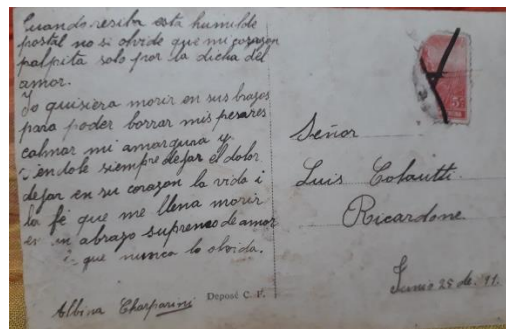 Cuando reciba esta humilde
postal no si olvide que mi corazon
palpita solo por la dicha del
amor.
Yo quisiera morir en sus brazos
para poder borrar mis pesares
calmar mi amargura y
siempre dejar el dolor
dejar en su corazon la vida i
la fé que me llena morir
en un abrazo supremo de amor
i que nunca lo olvida.
Albina
Deposé C. F.
5
Señor
Luis Colautti.
Ricardone
Junio 25 de. 11.